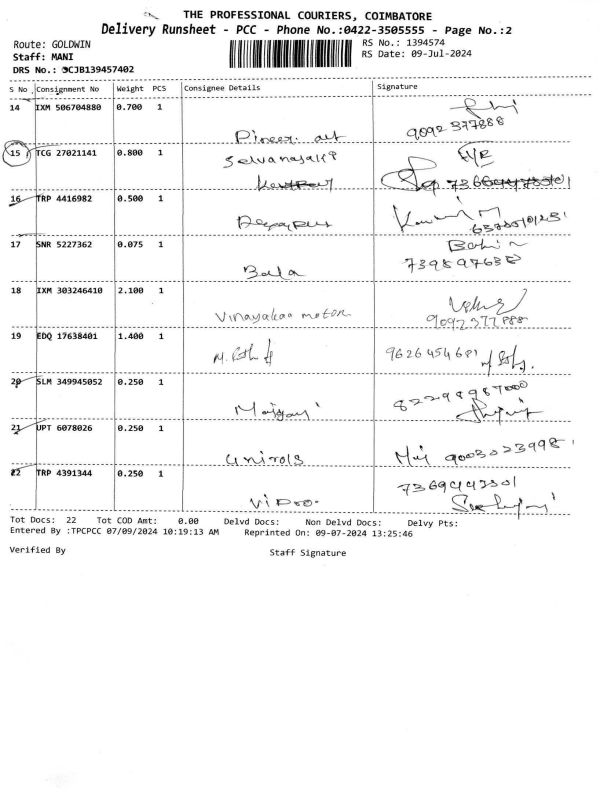 THE PROFESSIONAL COURIERS, COIMBATORE
Delivery Runsheet - PCC - Phone No.:0422-3505555 - Page No.:2
Route: GOLDWIN
RS No.: 1394574
Staff: MANI
RS Date: 09-Jul-2024
DRS No.: CJB139457402
S No. Consignment No Weight PCS Consignee Details Signature
14 IXM 506704880 0.700 1
9092 377888
15 TCG 27021141 0.800 1 Selvanayaki
16 TRP 4416982 0.500 1
17 SNR 5227362 0.075 1
Bala 7398897638
18 IXM 303246410 2.100 1
Vinayakaa motor 9092377888
19 EDQ 17638401 1.400 1
9626454681
20 SLM 349945052 0.250 1
21 UPT 6078026 0.250 1
Unirols 9003023998
22 TRP 4391344 0.250 1
Tot Docs: 22 Tot COD Amt: 0.00 Delvd Docs: Non Delvd Docs: Delvy Pts:
Entered By :TPCPCC 07/09/2024 10:19:13 AM Reprinted On: 09-07-2024 13:25:46
Verified By Staff Signature